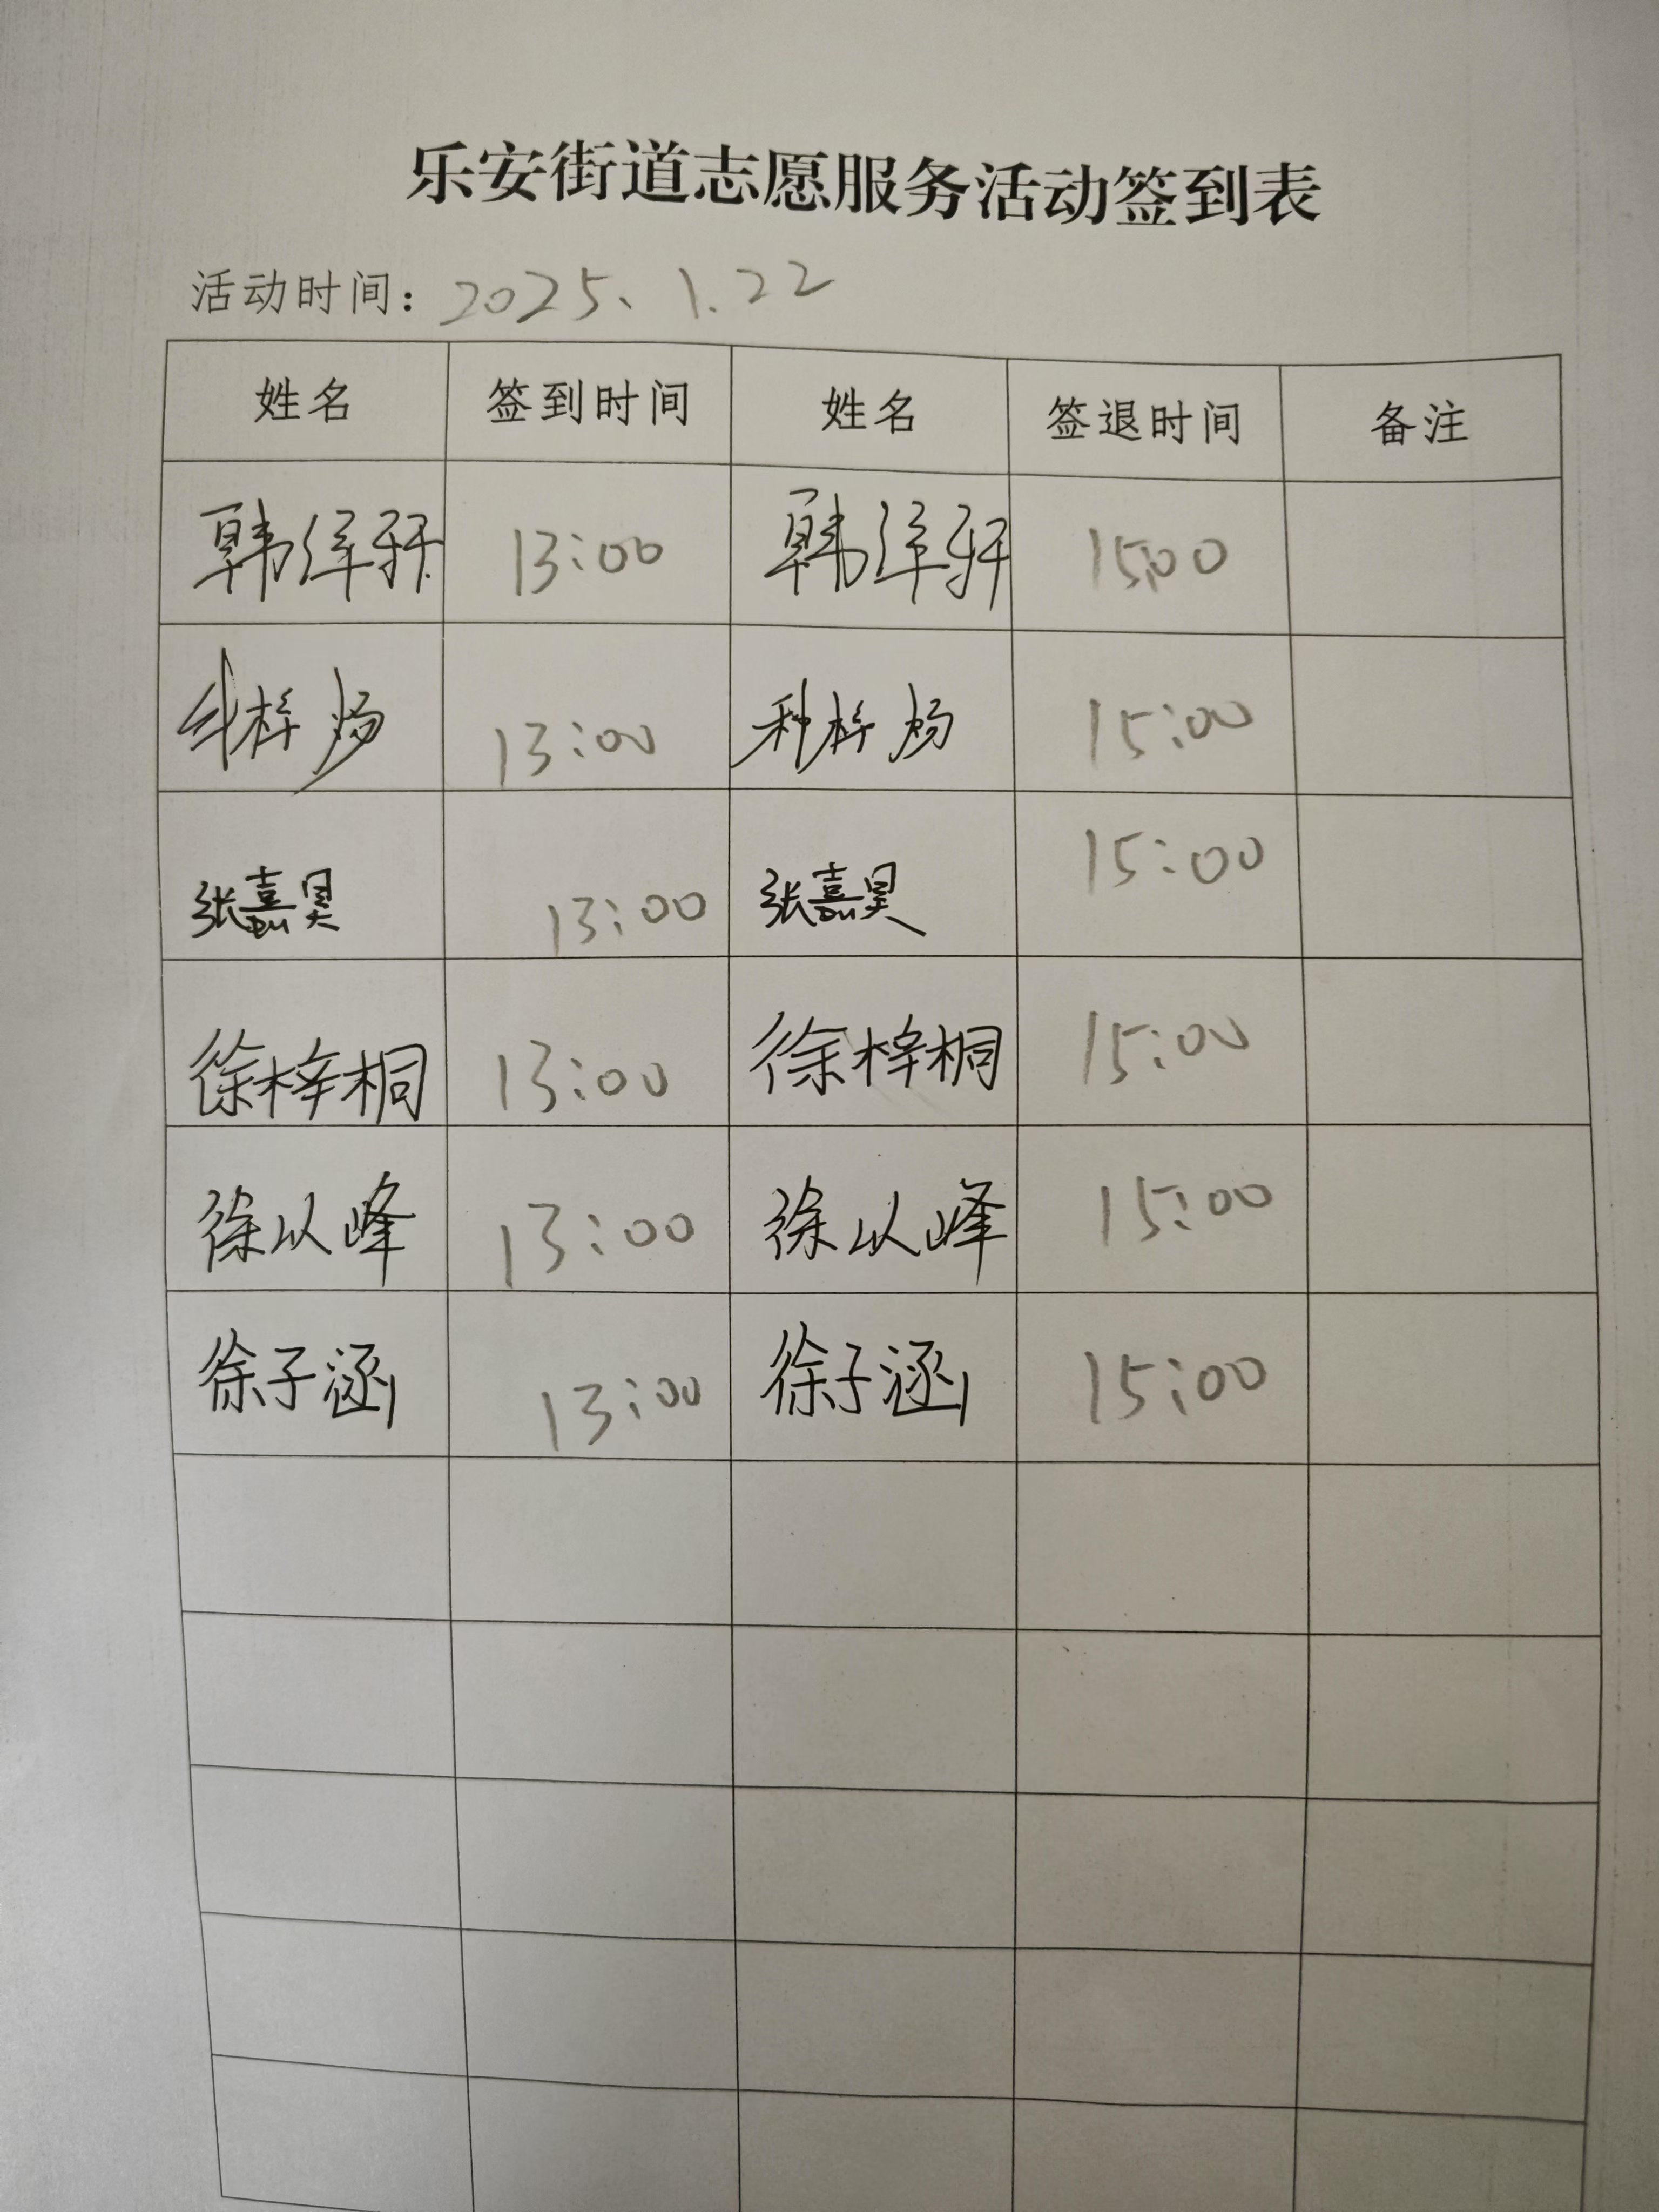 乐安街道志愿服务活动签到表
活动时间：2025、1.22
姓名 签到时间 姓名 签退时间 备注
13:00 15:00
梓炀 13:00 种梓炀 15:00
张嘉昊 13:00 张嘉昊 15:00
徐梓桐 13:00 徐梓桐 15:00
徐以峰 13:00 徐以峰 15:00
徐子涵 13:00 徐子涵 15:00